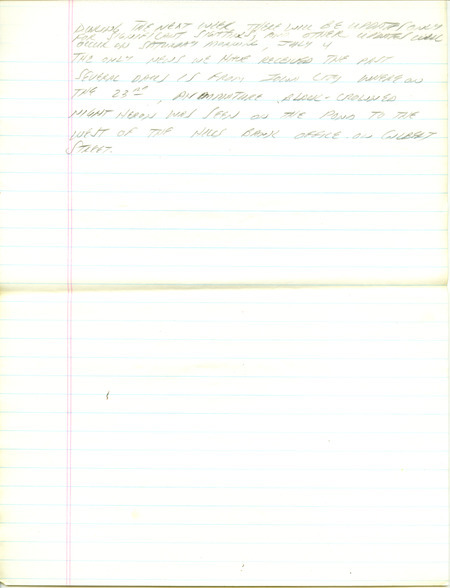 DURING THE NEXT WEEK, THERE WILL BE UPDATES ONLY
FOR SIGNIFICANT SIGHTINGS, ANY OTHER UPDATES WILL
OCCUR ON SATURDAY MORNING, JULY 4
THE ONLY NEWS WE HAVE RECEIVED THE PAST
SEVERAL DAYS IS FROM IOWA CITY WHERE ON
THE 23RD, AN IMMATURE BLACK-CROWNED
NIGHT HERON WAS SEEN ON THE POND TO THE
WEST OF THE HILLS BANK OFFICE ON GILBERT
STREET.